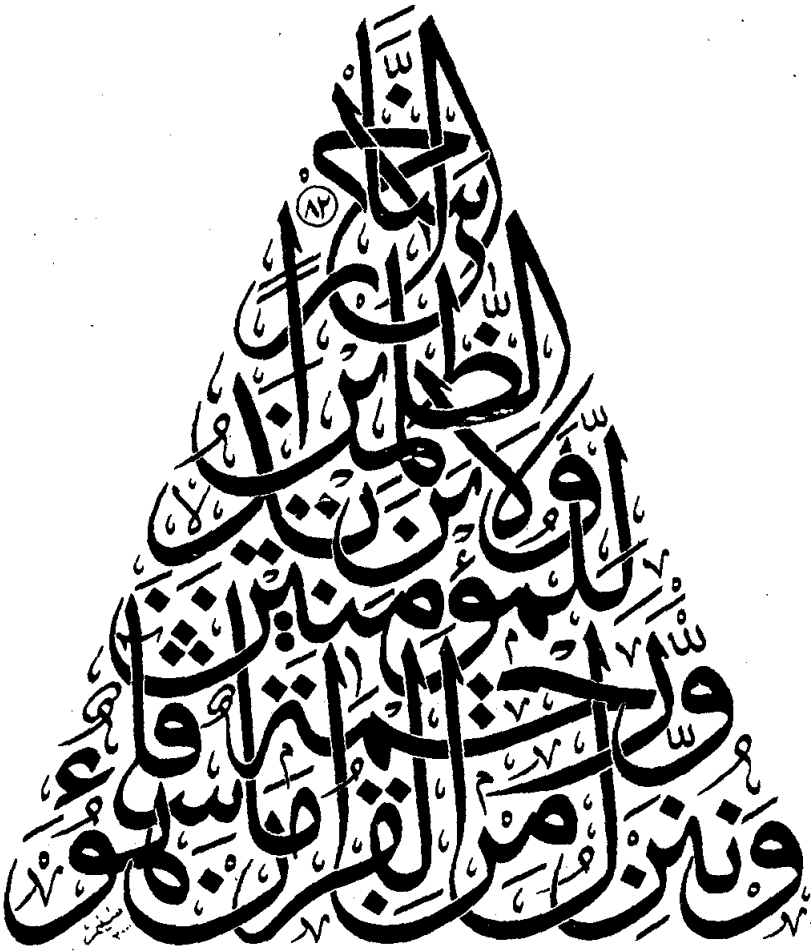 وَنُنَزِّلُ مِنَ الْقُرْآنِ مَا هُوَ شِفَاءٌ
وَّرَحْمَةٌ
لِّلْمُؤْمِنِينَ
وَلَا يَزِيدُ
الظّٰلِمِينَ
إِلَّا خَسَارًا
٨٢